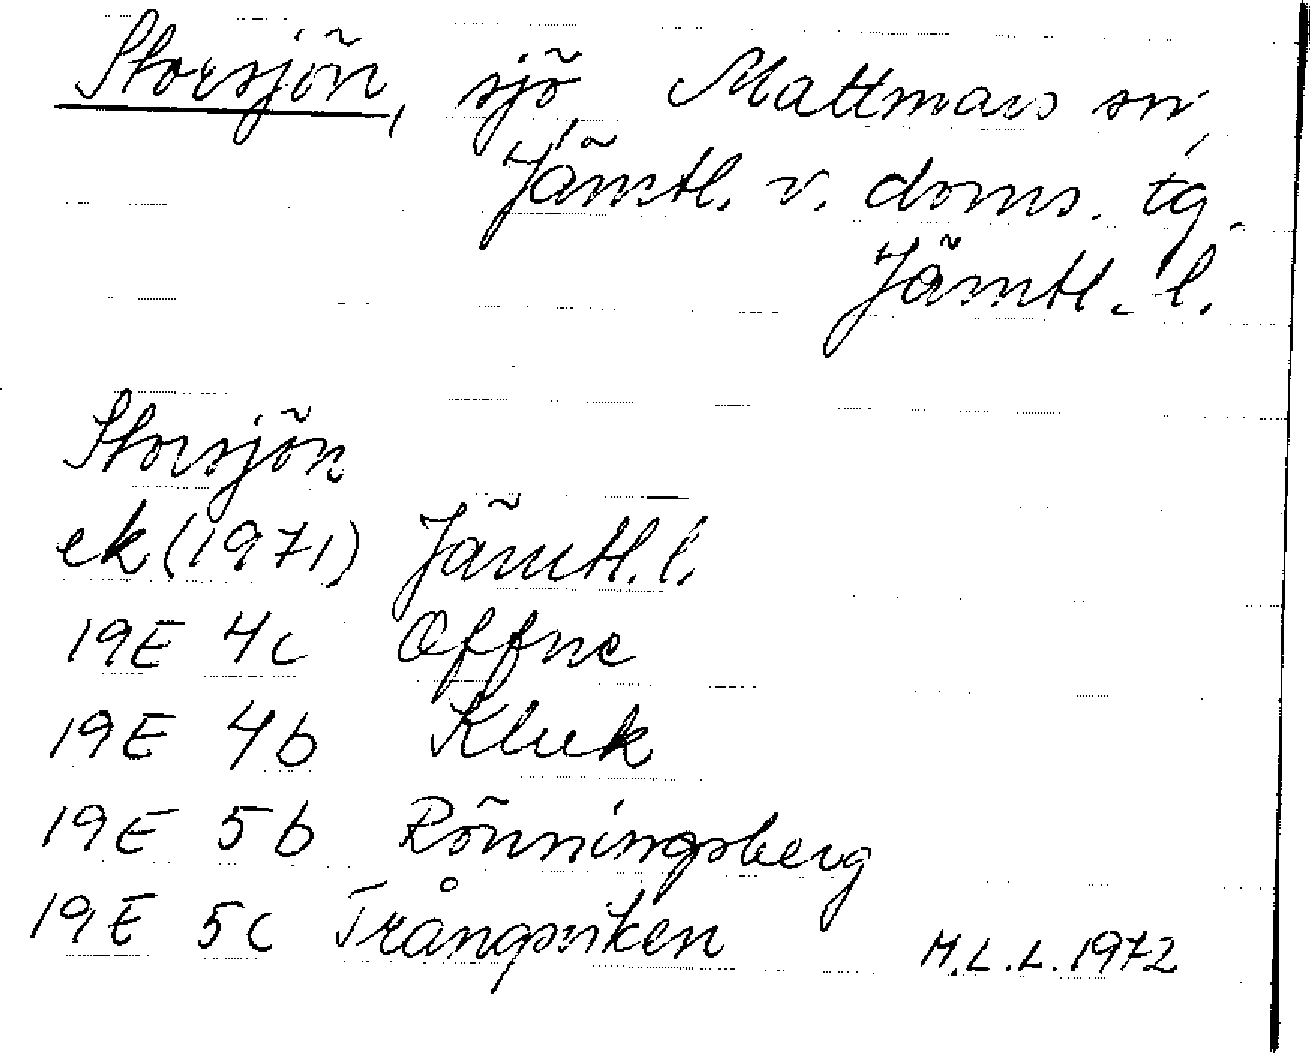 Storsjön, sjö Mattmars sn,
Jämtl. v. doms. tg.
Jämtl. l.
Storsjön
ek (1971) Jämtl. l.
19E 4c Offne
19E 4b Kluk
19E 5b Rönningsberg
19E 5c Trångsviken
M.L.L. 1972